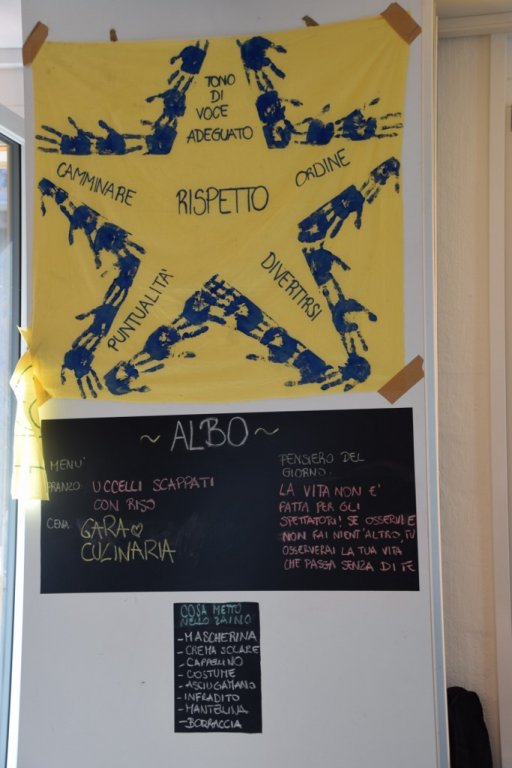 TONO
DI
VOCE
ADEGUATO
CAMMINARE
RISPETTO
ORDINE
PUNTUALITA'
DIVERTIRSI
~ ALBO ~
MENU'
PRANZO: UCCELLI SCAPPATI
CON RISO
CENA: GARA
CULINARIA
PENSIERO DEL
GIORNO:
LA VITA NON E'
FATTA PER GLI
SPETTATORI! SE OSSERVI E
NON FAI NIENT'ALTRO, TU
OSSERVERAI LA TUA VITA
CHE PASSA SENZA DI TE
COSA METTO
NELLO ZAINO
- MASCHERINA
- CREMA SOLARE
- CAPPELLINO
- COSTUME
- ASCIUGAMANO
- INFRADITO
- MANTELLINA
- BORRACCIA